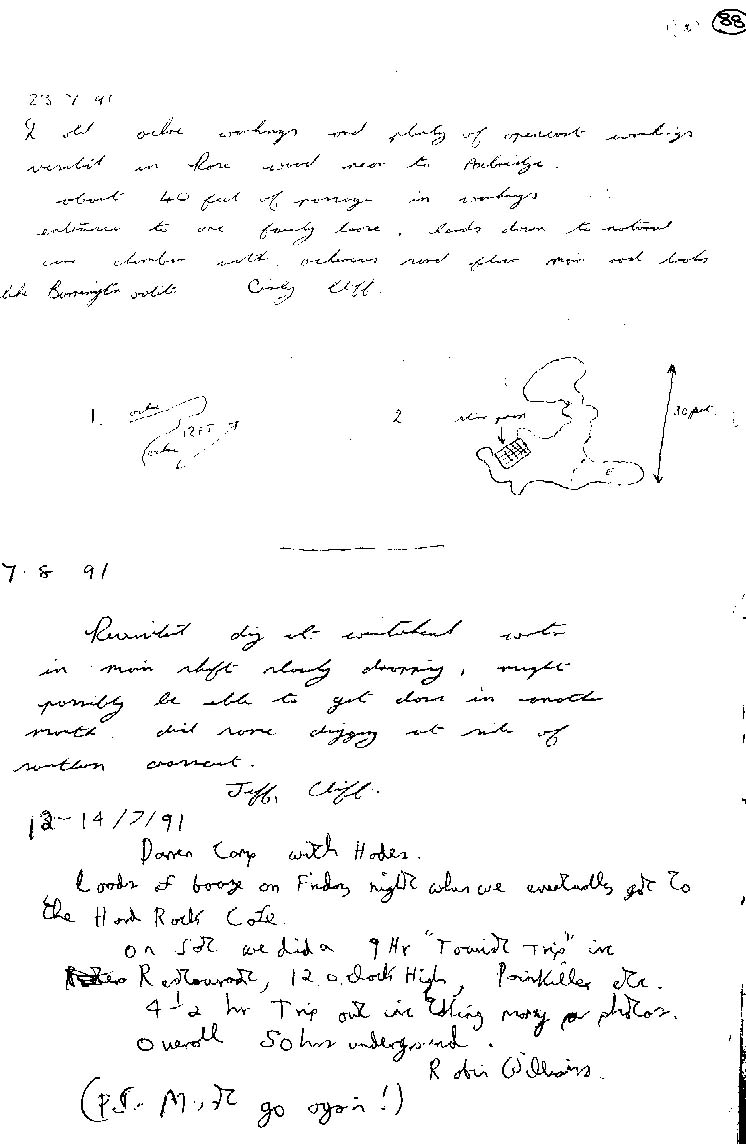 88
23 7 91
2 old ochre workings and plenty of opencast workings
visited in Rose wood near to Axbridge.
about 40 feet of passage in workings
entrance to one fairly loose, leads down to natural
cave chamber with ochreous and other main and looks
like Burrington oolite Cindy Cliff.
1. ochre 12 FT ochre
2 30 feet.
E
7. 8 91
Revisited dig at water
in main shaft slowly dropping, might
possibly be able to get down in another
month. did some digging at side of
southern
Jeff, Cliff.
12-14/7/91
Darren Camp with Hades.
Loads of booze on Friday night when we eventually got to
the Hard Rock Cafe.
on Sat we did a 9 Hr "Tourist Trip" in
Restaurant, 12 o,clock High, Painkiller etc.
4½ hr Trip out inc taking many photos.
Overall 50 hrs underground.
Robin Williams.
(P.S. Must go again!)